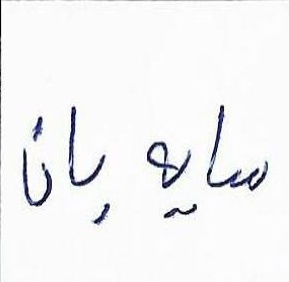 سایه بانا